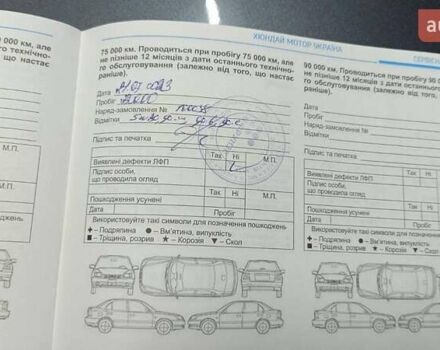 ХЮНДАЙ МОТОР УКРАЇНА
75 000 км. Проводиться при пробігу 75 000 км, але
не пізніше 12 місяців з дати останнього технічно-
го обслуговування (залежно від того, що настає
раніше).
Дата
Пробіг
Наряд-замовлення №
Відмітки
Підпис та печатка
М.П.
Виявлені дефекти ЛФП
Так Ні
М.П.
Підпис особи,
що проводила огляд
Пошкодження усунені
Так Ні
Дата
Пробіг
Використовуйте такі символи для позначення пошкоджень
✚ – Подряпина ● – Вм'ятина, випуклість
■ – Тріщина, розрив ★ – Корозія ▼ – Скол
000 км, але
о технічно-
що настає
М.П.
М.П.
шкоджень
90 000 км. Проводиться при пробігу 90
не пізніше 12 місяців з дати останньо
го обслуговування (залежно від того,
раніше).
Дата
Пробіг
Наряд-замовлення №
Відмітки
Підпис та печатка
Виявлені дефекти ЛФП
Так
Підпис особи,
що проводила огляд
Пошкодження усунені
Так
Дата
Пробіг
Використовуйте такі символи для позна
✚ – Подряпина ● – Вм'ятина, випук
■ – Тріщина, розрив ★ – Корозія